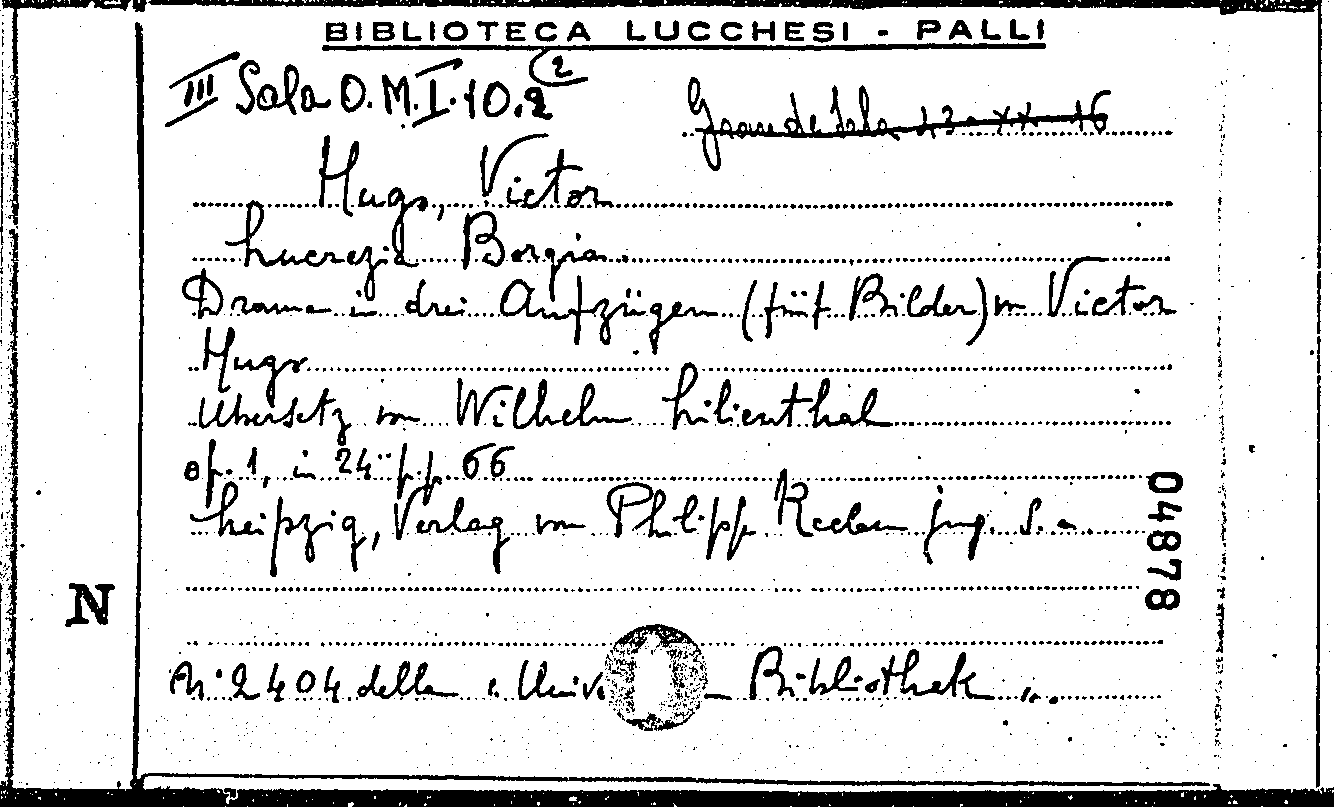 BIBLIOTECA LUCCHESI - PALLI
III Sala O.M.I.10.2 (2
Grande Sala 23-XX-16
Hugo, Victor
Lucrezia Borgia.
Drama in drei Aufzügen (fünf Bilder) von Victor
Hugo
Übersetz von Wilhelm Lilienthal
op. 1, in 24° p.p. 66
Leipzig, Verlag von Philipp Reclam jung. S. a.
N
04878
N. 2404 della " Univ Bibliothek "